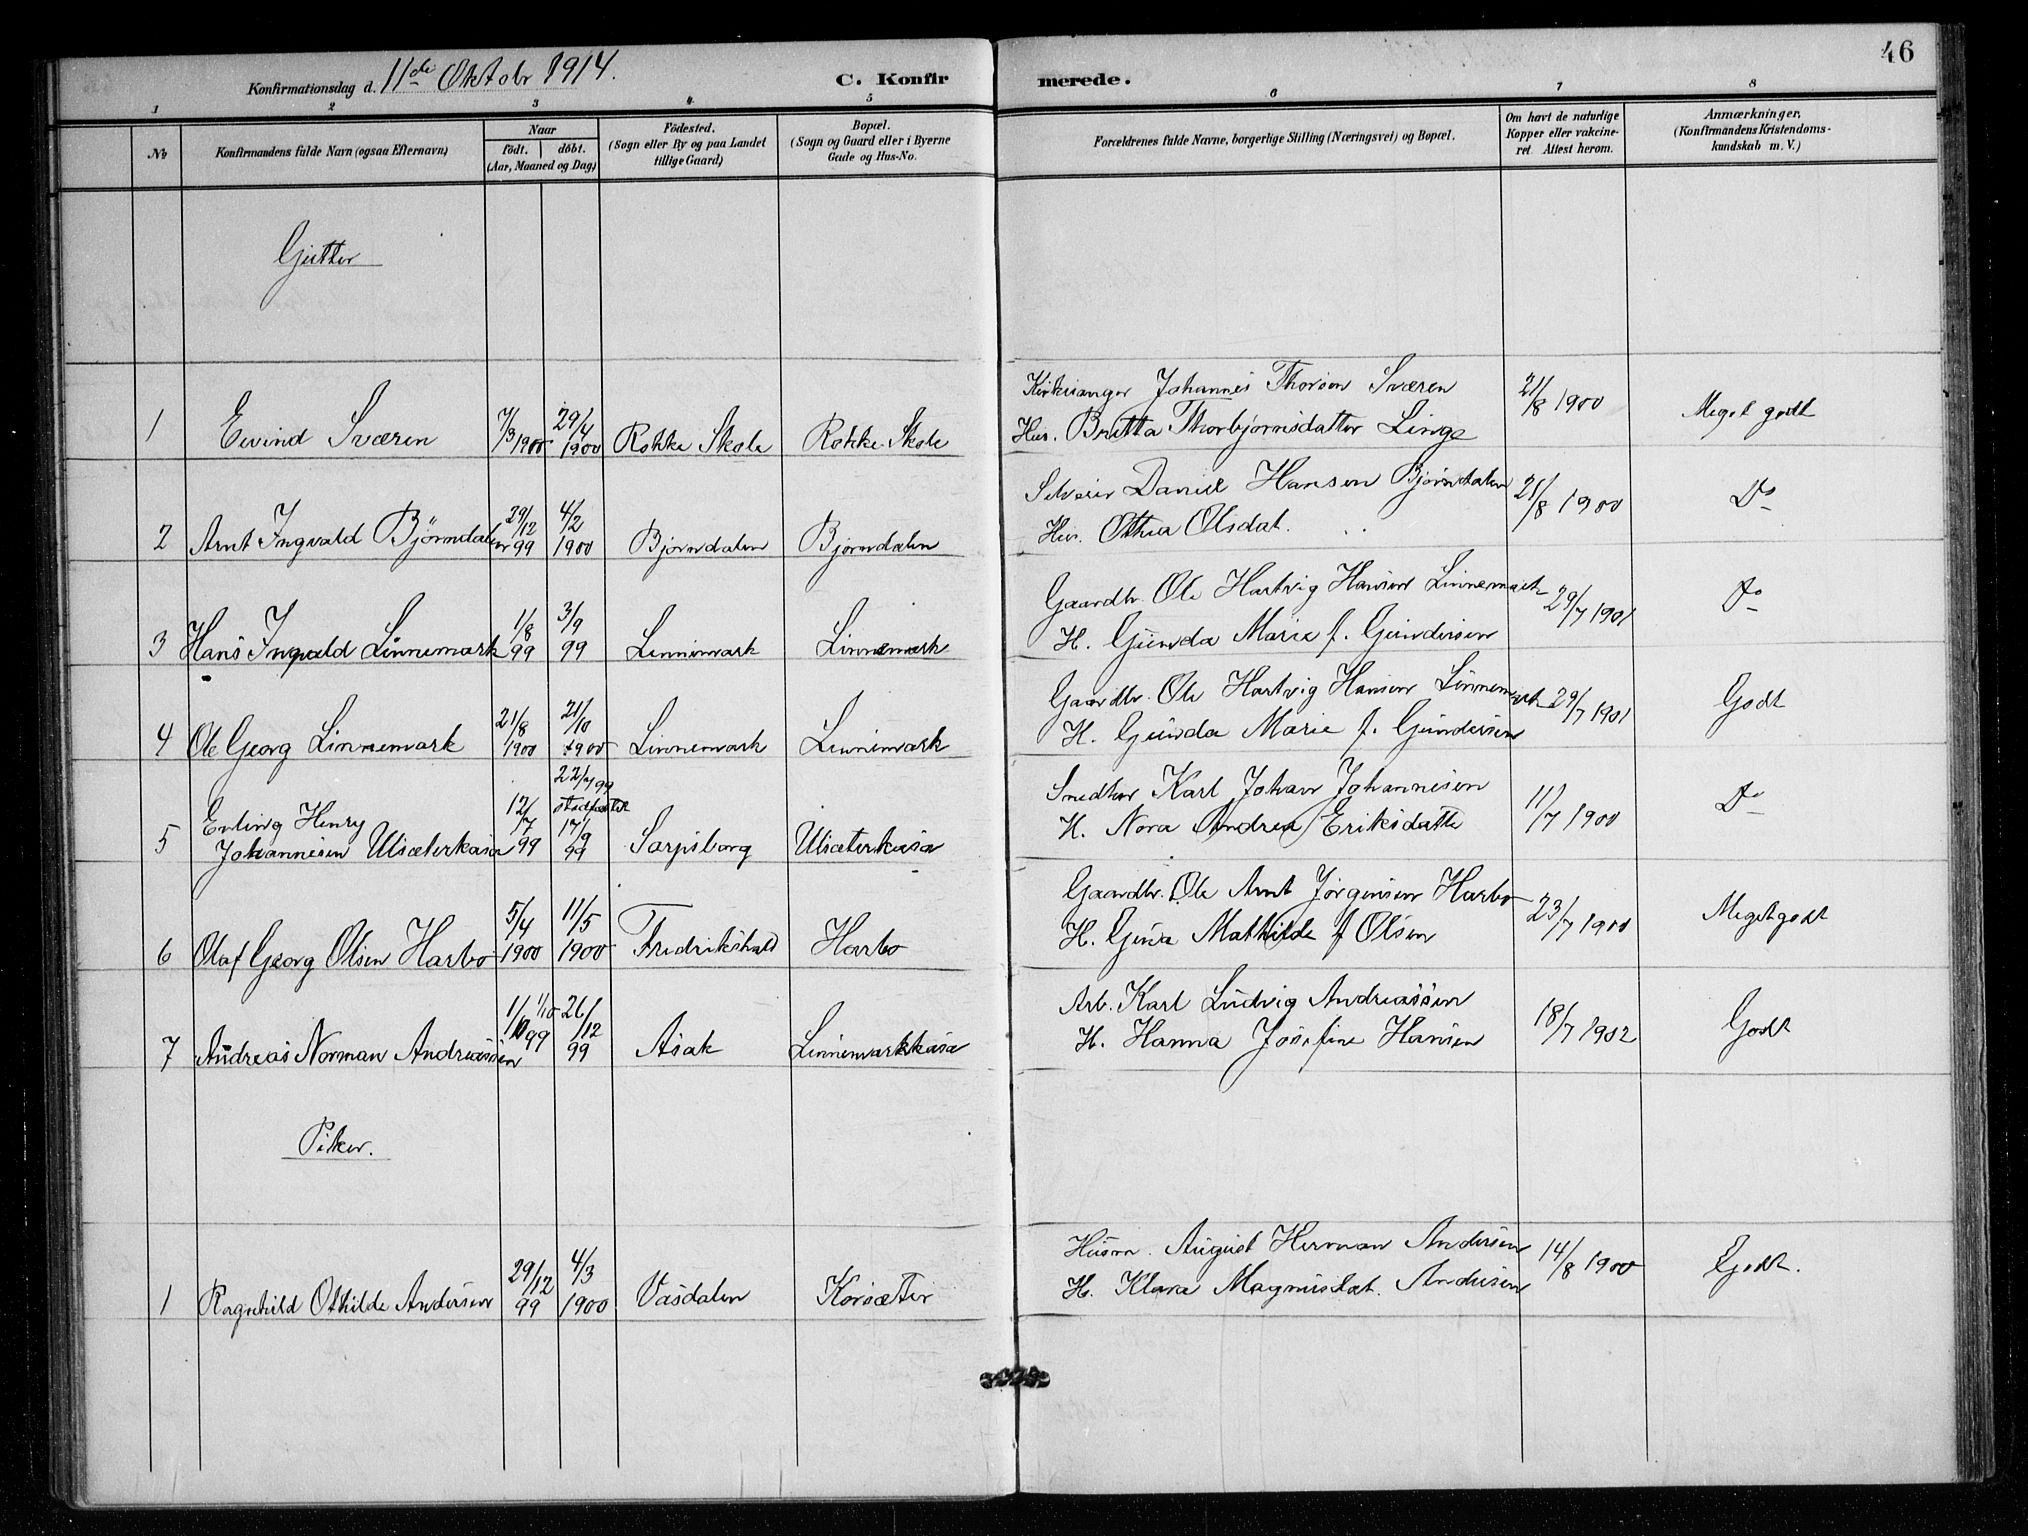 46
Konfirmationsdag d. 11te Oktobr 1914.
C. Konfirmerede.
1 2 3 4 5 6 7 8
No
Konfirmandens fulde Navn (ogsaa Efternavn)
Naar
födt. döbt.
(Aar, Maaned og Dag)
Födested.
(Sogn eller By og paa Landet
tillige Gaard)
Bopæl.
(Sogn og Gaard eller i Byerne
Gade og Hus-No.
Forældrenes fulde Navne, borgerlige Stilling (Næringsvei) og Bopæl.
Om havt de naturlige
Kopper eller vakcine-
ret Attest herom.
Anmærkninger.
(Konfirmandens Kristendoms-
kundskab m. V.)
Gutter
Kirkesanger Johannes Thorsen Sværen
1 Eivind Sværen 7/3 1900 29/4 1900 Rokke Skole Rokke Skole Hus. Britta Thorbjørnsdatter Linge 21/8 1900 Meget godt
Selveier Daniel Hansen Bjørndalen
2 Arnt Ingvald Björndalen 29/12 99 4/2 1900 Bjørndalen Bjørndalen Hus. Othea Olsdat. 21/8 1900 Do
Gaardbr. Ole Hartvig Hansen Linnemark
3 Hans Ingvald Linnemark 1/8 99 3/9 99 Linnemark Linnemark H. Gunda Marie f. Gundersen 29/7 1901 Do
Gaardbr. Ole Hartvig Hansen Linnemark
4 Ole Georg Linnemark 21/8 1900 21/10 1900 Linnemark Linnemark H. Gunda Marie f. Gundersen 29/7 1901 Godt
Erling Henry 22/7 99 Karl Johan Johannesen
5 Johannesen Ulsæterkasa 12/7 99 17/9 99 Sarpsborg Ulsæterkasa H. Nora Andrea Eriksdatter 11/7 1900 Do
Gaardbr. Ole Arnt Jørgensen Harbo
6 Olaf Georg Olsen Harbo 5/4 1900 11/5 1900 Fredrikshald Harbo H. Gina Mathilde f Olsen 23/7 1900 Meget godt
Arb. Karl Ludvig Andreassen
7 Andreas Norman Andreassen 1/10 99 1/10 26/12 99 Asak Linnemarkkasa H. Hanna Josefine Hansen 18/7 1902 Godt
Piker.
Husm. August Herman Andersen
1 Ragnhild Othilde Andersen 29/12 99 4/3 1900 Vasdalen Korsæter H. Klara Magnusdat. Andersen 14/8 1900 Godt.